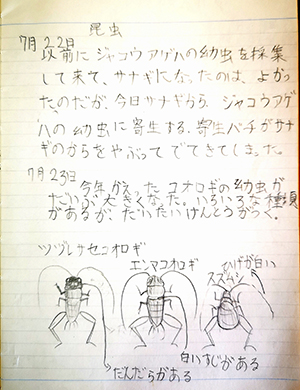 昆虫
7月22日
以前にジャコウアゲハの幼虫を採集
して来て、サナギになったのは、よかっ
たのだが、今日サナギから、ジャコウアゲ
ハの幼虫に寄生する、寄生バチがサナ
ギのからをやぶってでてきてしまった。
7月23日
今年かえったコオロギの幼虫が
だいぶ大きくなった。いろいろな種類
があるが、だいたいけんとうがつく。
ツヅレサセコオロギ
エンマコオロギ
ひげが白い
スズムシ
だんだらがある
白いすじがある